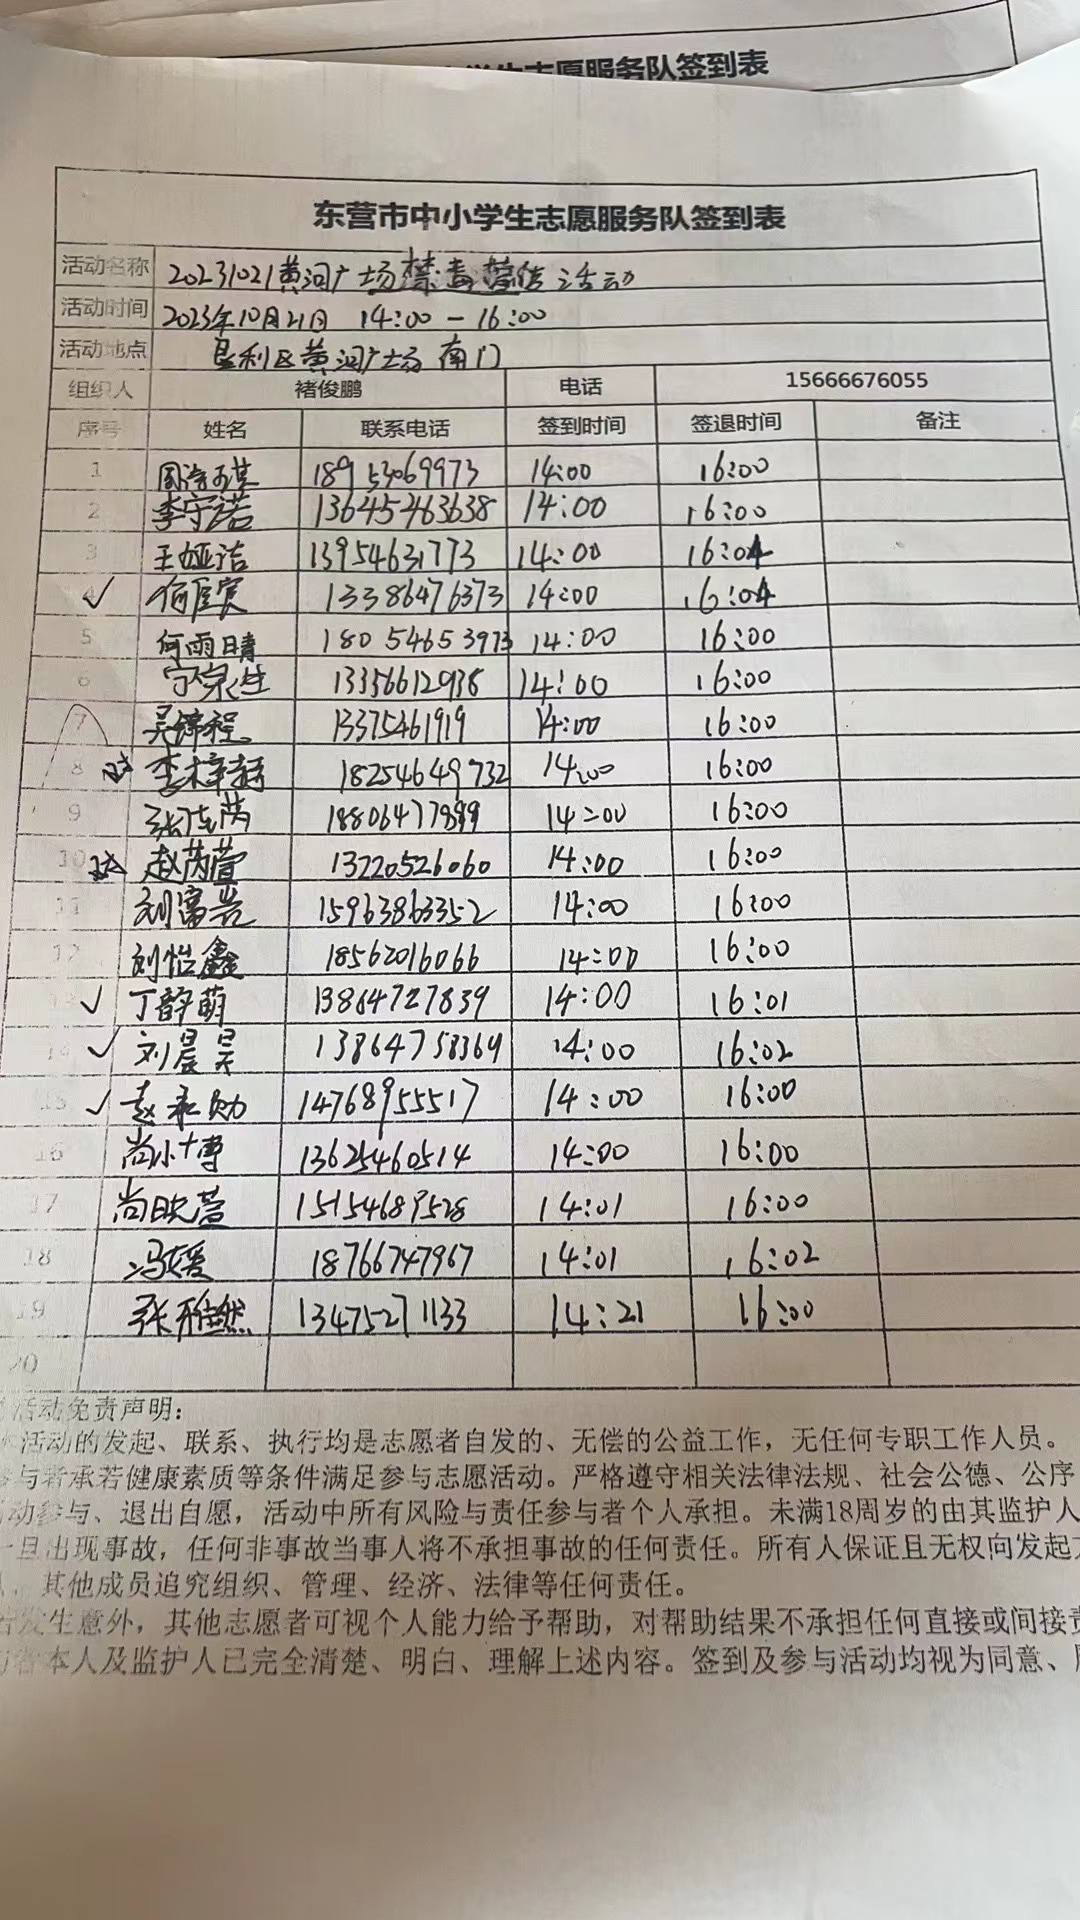 学生志愿服务队签到表
东营市中小学生志愿服务队签到表
活动名称 20231021黄河广场禁毒宣传活动
活动时间 2023年10月21日 14:00-16:00
活动地点 垦利区黄河广场南门
组织人 褚俊鹏 电话 15666676055
序号 姓名 联系电话 签到时间 签退时间 备注
1 18953069973 14:00 16:00
2 李守诺 13645463638 14:00 16:00
3 王娅洁 13954631773 14:00 16:04
4 13386476373 14:00 16:04
5 何雨晴 18054653973 14:00 16:00
6 13356612938 14:00 16:00
7 吴锦程 13375461919 14:00 16:00
8 李梓赫 18254649732 14:00 16:00
9 14:00 16:00
10 赵芮萱 13220526060 14:00 16:00
11 刘富岩 15963863352 14:00 16:00
12 刘怡鑫 18562016066 14:00 16:00
13 丁韵萌 13864727839 14:00 16:01
14 刘晨昊 13864758369 14:00 16:02
15 赵 14768955517 14:00 16:00
16 尚小博 13625460514 14:00 16:00
17 尚映萱 15154689528 14:01 16:00
18 冯媛 18766747967 14:01 16:02
19 张雅然 13475271133 14:21 16:00
20
活动免责声明：
活动的发起、联系、执行均是志愿者自发的、无偿的公益工作，无任何专职工作人员。
参与者承若健康素质等条件满足参与志愿活动。严格遵守相关法律法规、社会公德、公序
动参与、退出自愿，活动中所有风险与责任参与者个人承担。未满18周岁的由其监护人
一旦出现事故，任何非事故当事人将不承担事故的任何责任。所有人保证且无权向发起
其他成员追究组织、管理、经济、法律等任何责任。
发生意外，其他志愿者可视个人能力给予帮助，对帮助结果不承担任何直接或间接责
者本人及监护人已完全清楚、明白、理解上述内容。签到及参与活动均视为同意、